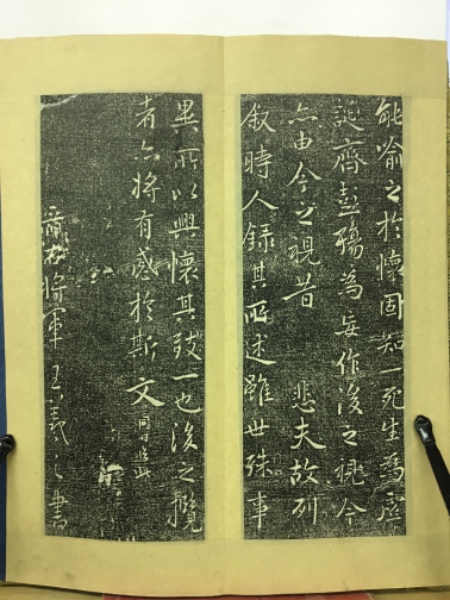 能喻之於懷固知一死生為虛
誕齊彭殤為妄作後之視今
亦由今之視昔 悲夫故列
叙時人録其所述雖世殊事
異所以興懷其致一也後之攬
者亦將有感於斯文
右將軍王羲之書